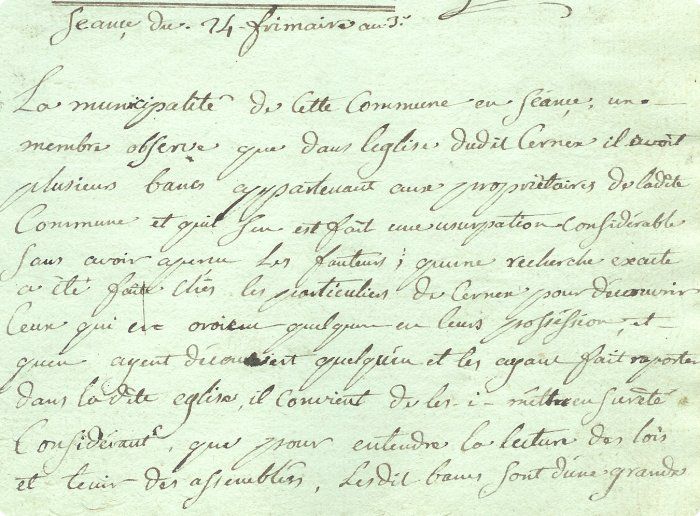 Seance du 24 frimaire an 3e
La municipalité de Cette Commune en Séance, un
membre observe que dans léglise dudit Cernex il avoit
plusieurs bancs appartenant aux propriètaires de ladte
Commune et quil Sen est fait une usurpation Considérable
Sans avoir aperçu Les fauteurs; quune recherche exacte
a été faite chés les particuliers de Cernex pour decouvrir
Ceux qui en oroient quelquun en leurs posséssion, et
quen ayent découvert quelquén et les ayant fait raporter
dans ladte eglise, il Convient de les - i - mettre en Sureté
Considérant, que pour entendre la lecture des lois
et tenir des assemblées, Lesdit bancs Sont dune grande